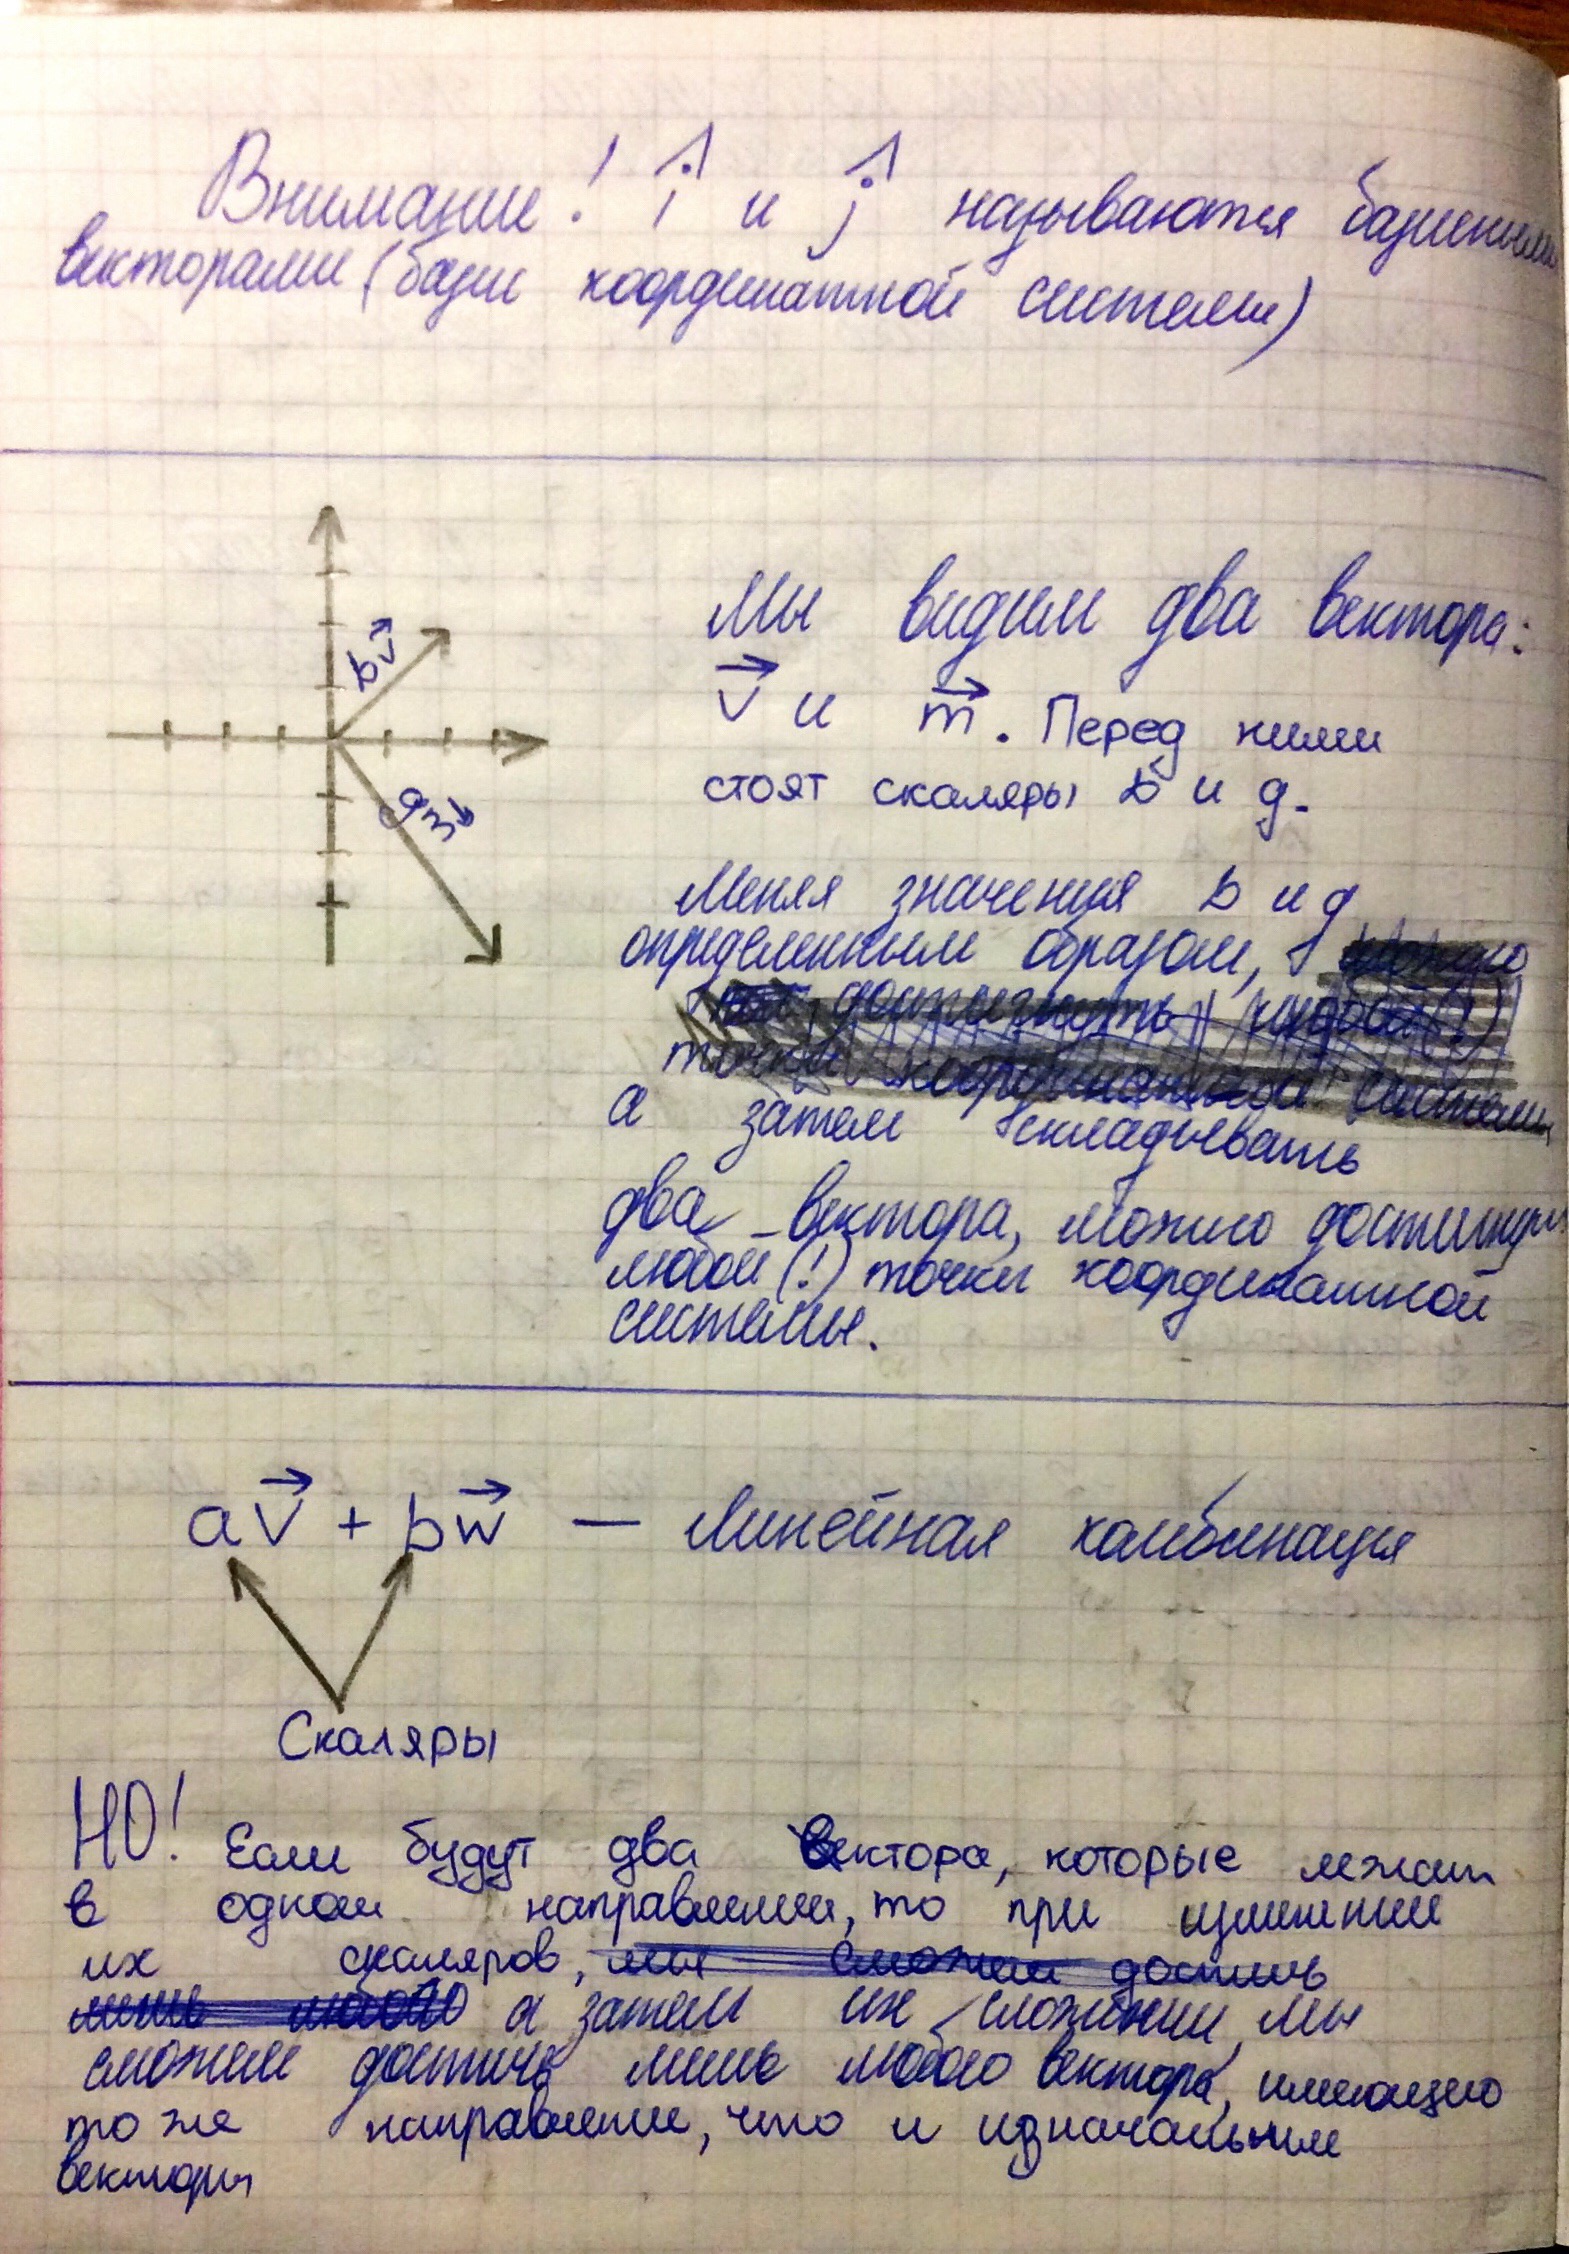 Внимание! î и ĵ называются базисными
векторами (базис координатной системы)
Мы видим два вектора:
v⃗ и m⃗. Перед ними
bv⃗
стоят скаляры b и g.
gm⃗
Меняя значения b и g
определенным образом,
точки координатной системы,
а затем складывать
два вектора, можно достигнуть
любой (!) точки координатной
системы.
av⃗ + bw⃗ — Линейная комбинация
Скаляры
НО! Если будут два вектора, которые лежат
в одном направлении, то при изменении
их скаляров, мы сможем достичь
лишь любого а затем их сложении, мы
сможем достичь лишь любого вектора, имеющего
то же направление, что и изначальные
вектора